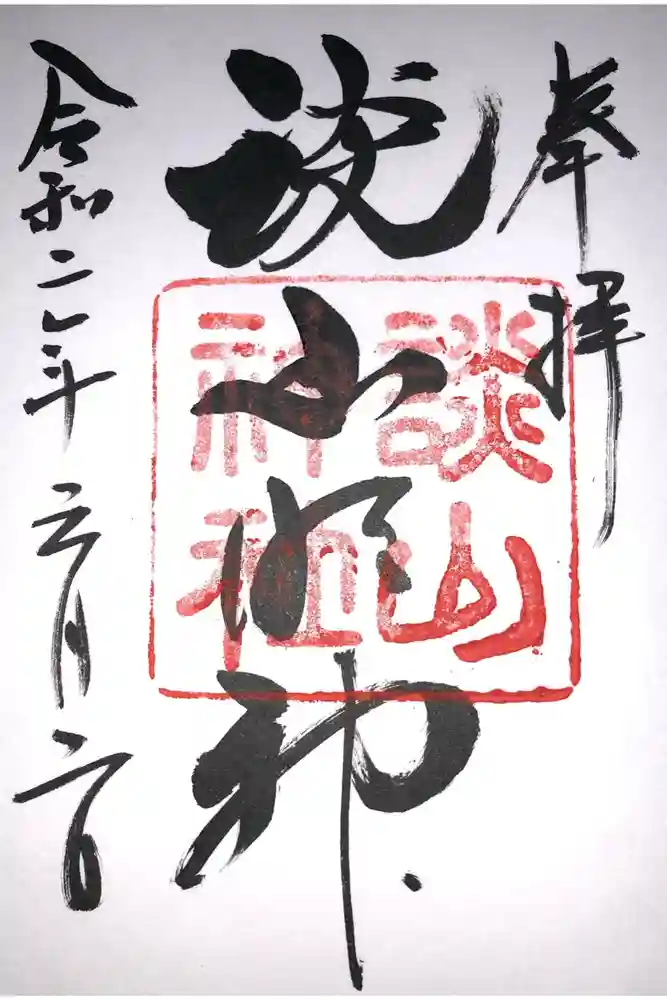 奉拝
談山明神
談山
神社
令和二年 月二日